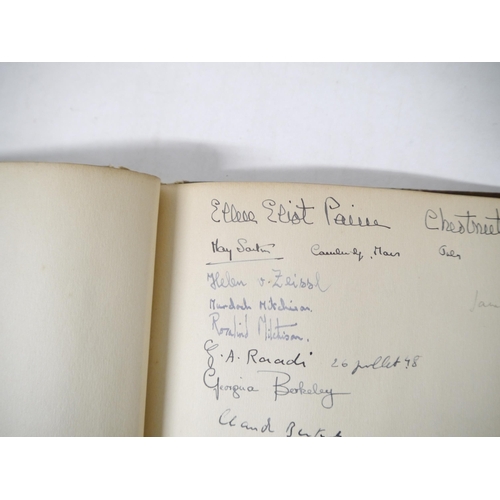 Ellen Eliot Paine Chestnut
May Sarton Cambridge, Mass
Helen v. Zeissl
Murdoch Mitchison.
Jan
Rosalind Mitchison.
G. A. Raradi 26 juillet 48
Georgina Berkeley
Claude